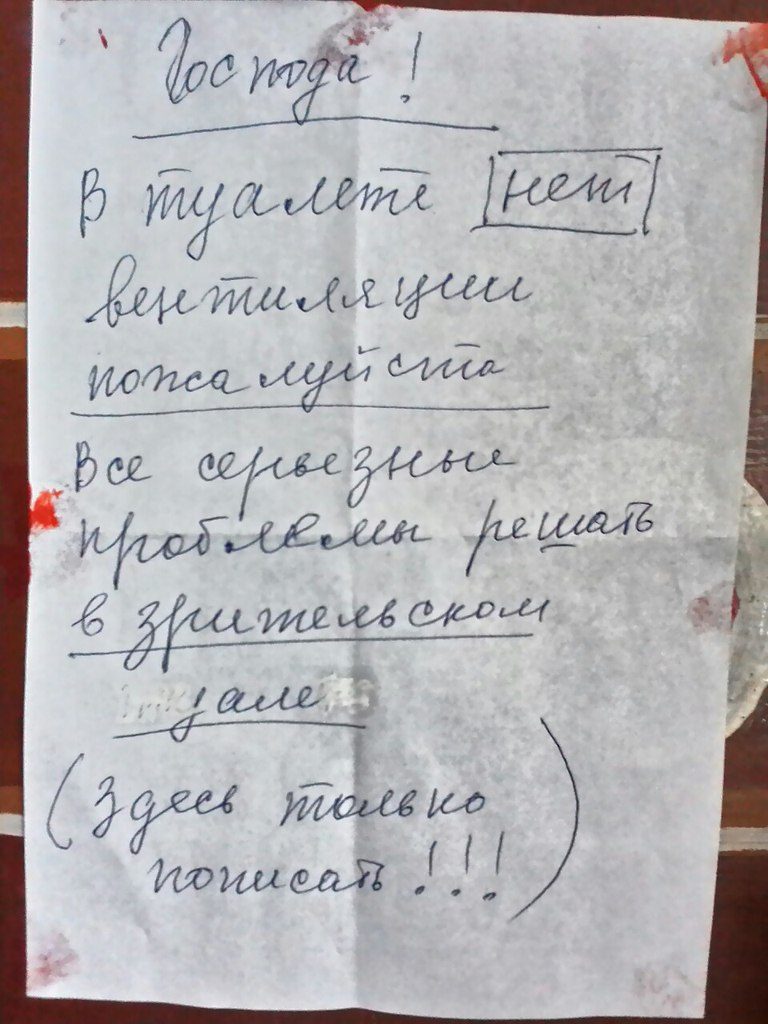 Господа!
В туалете нет
вентиляции
пожалуйста
Все серьезные
проблемы решать
в зрительском
зале
(Здесь только
пописать!!!)